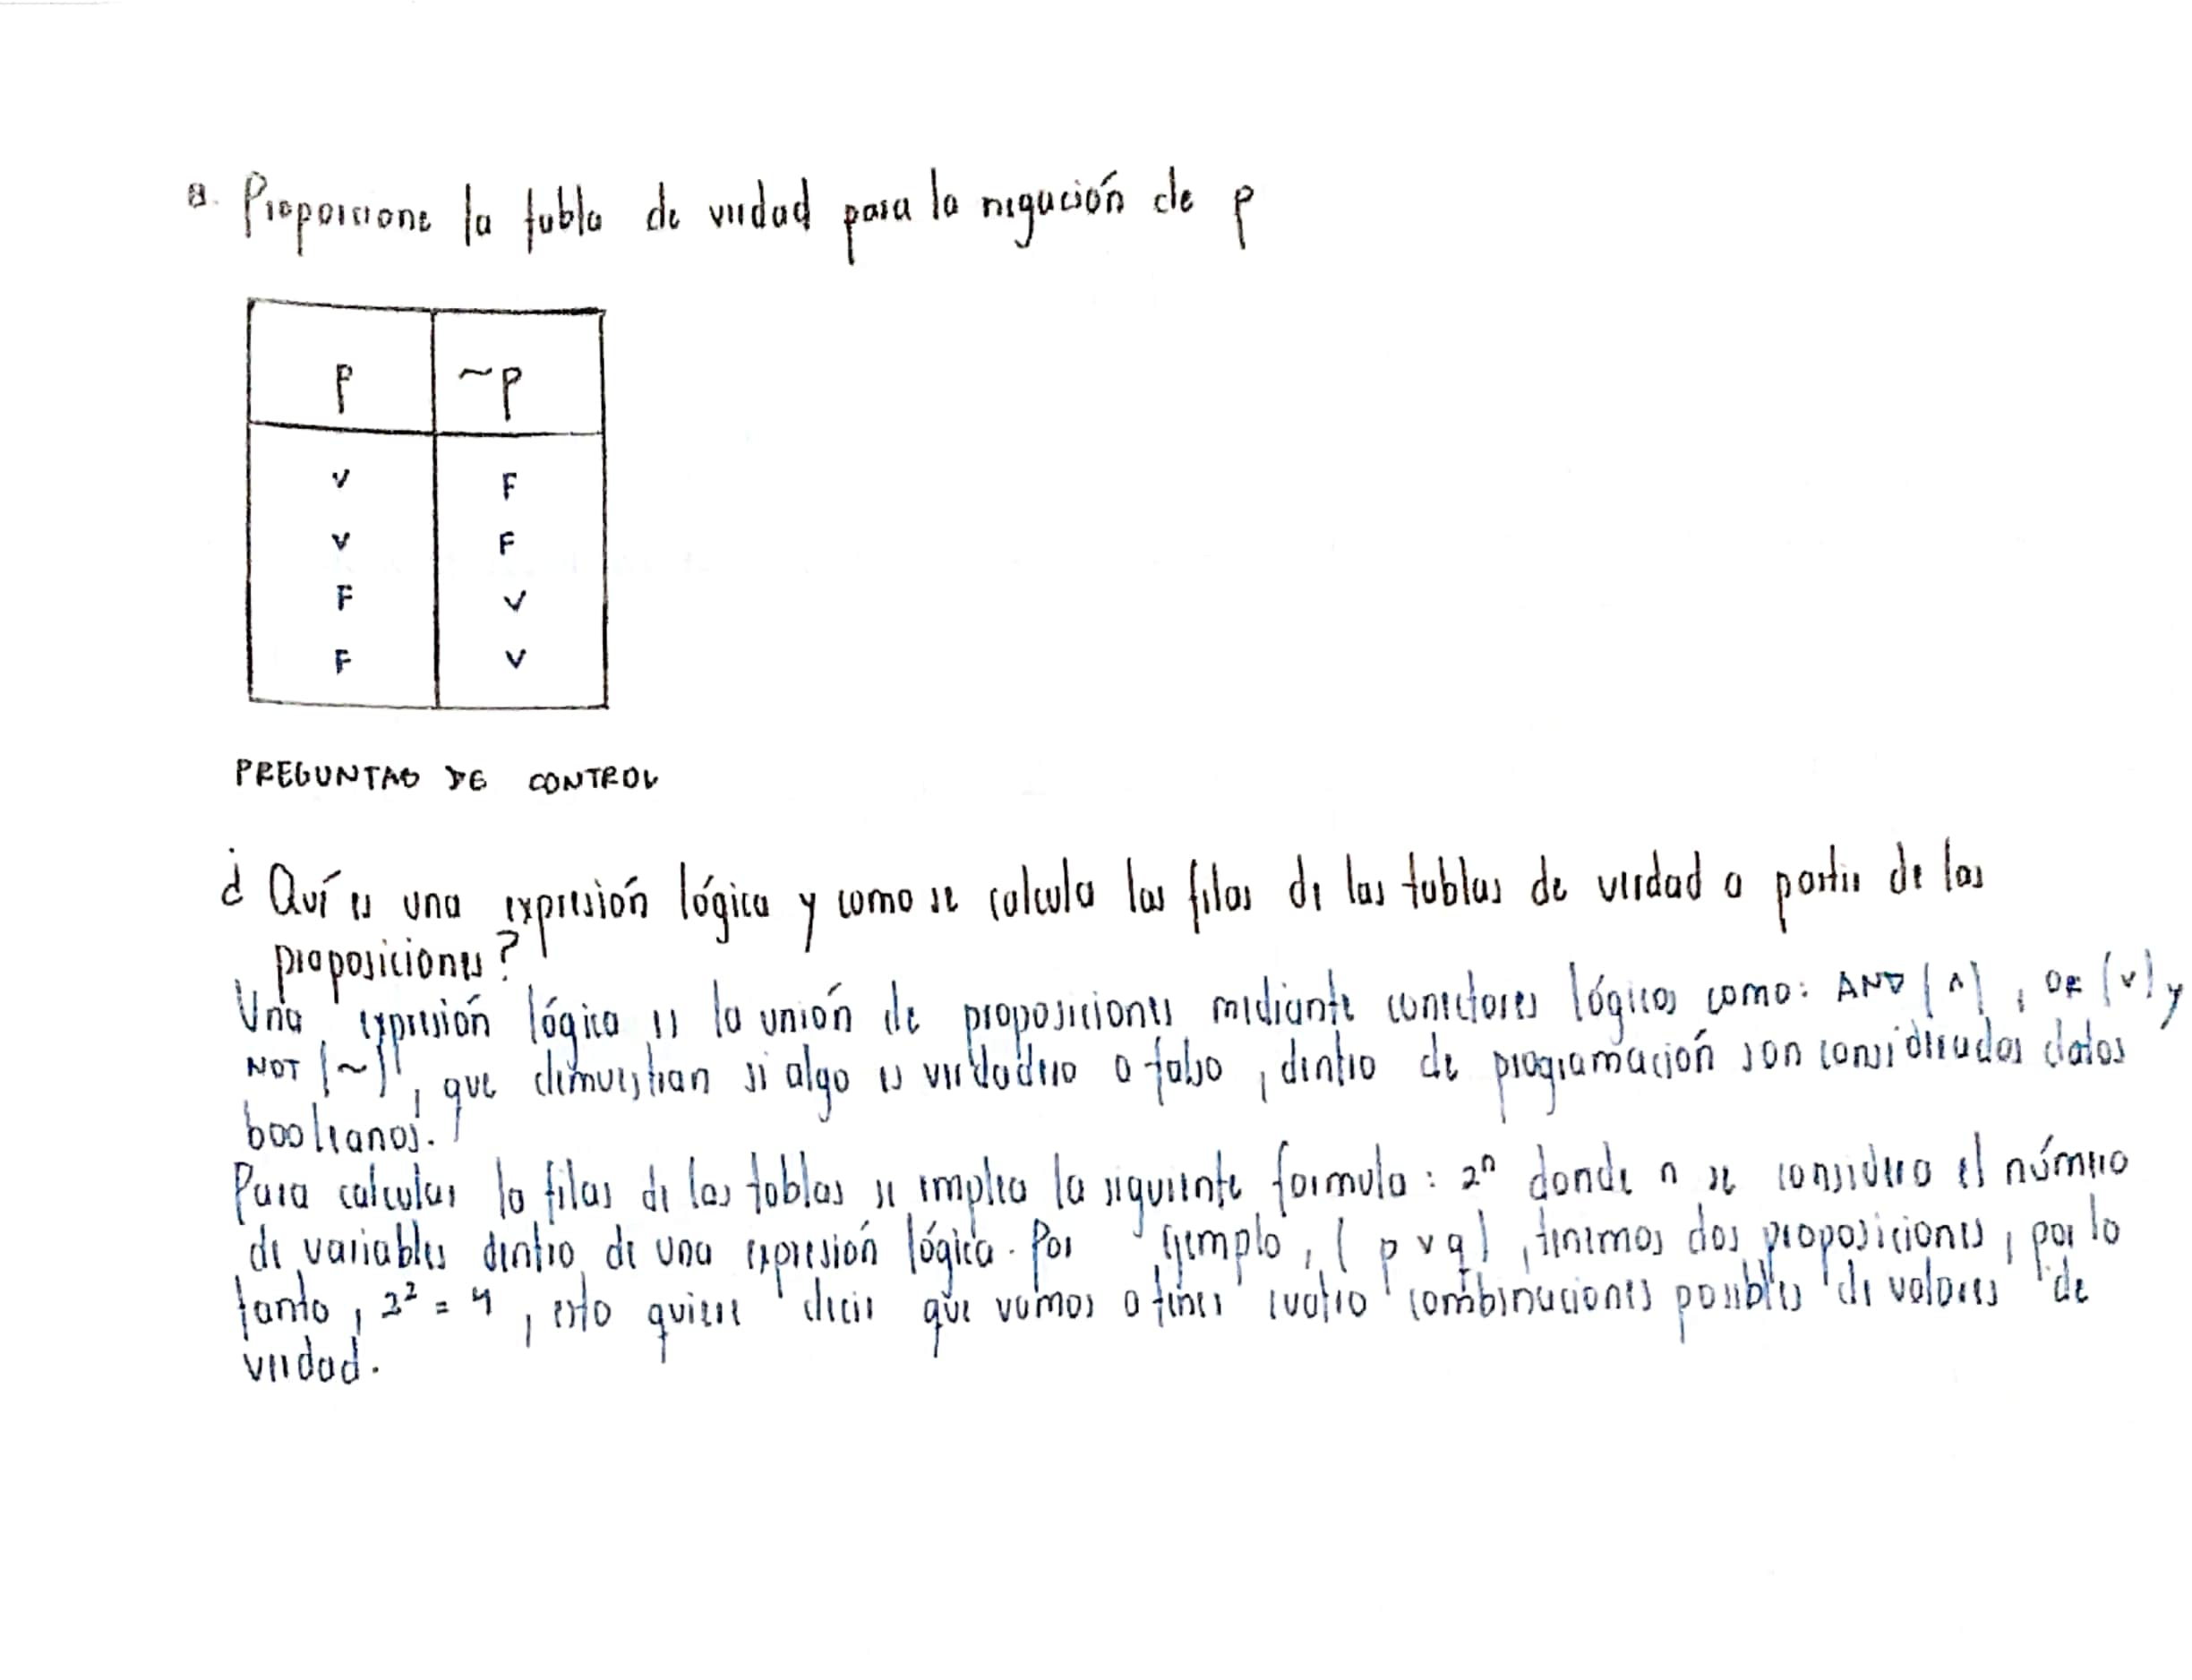 a. Proporcione la tabla de verdad para la negación de p
p ~p
V F
V F
F V
F V
PREGUNTAS DE CONTROL
¿Qué es una expresión lógica y como se calcula las filas de las tablas de verdad a partir de las
proposiciones?
Una expresión lógica es la unión de proposiciones mediante conectores lógicos como: AND (∧), OR (∨) y
NOT (~), que demuestran si algo es verdadero o falso, dentro de programación son considerados datos
booleanos.
Para calcular la filas de las tablas se emplea la siguiente formula: 2ⁿ donde n se considera el número
de variables dentro de una expresión lógica. Por ejemplo, (p ∨ q), tenimos dos proposiciones, por lo
tanto, 2² = 4, esto quiere decir que vamos a tener cuatro combinaciones posibles de valores de
verdad.